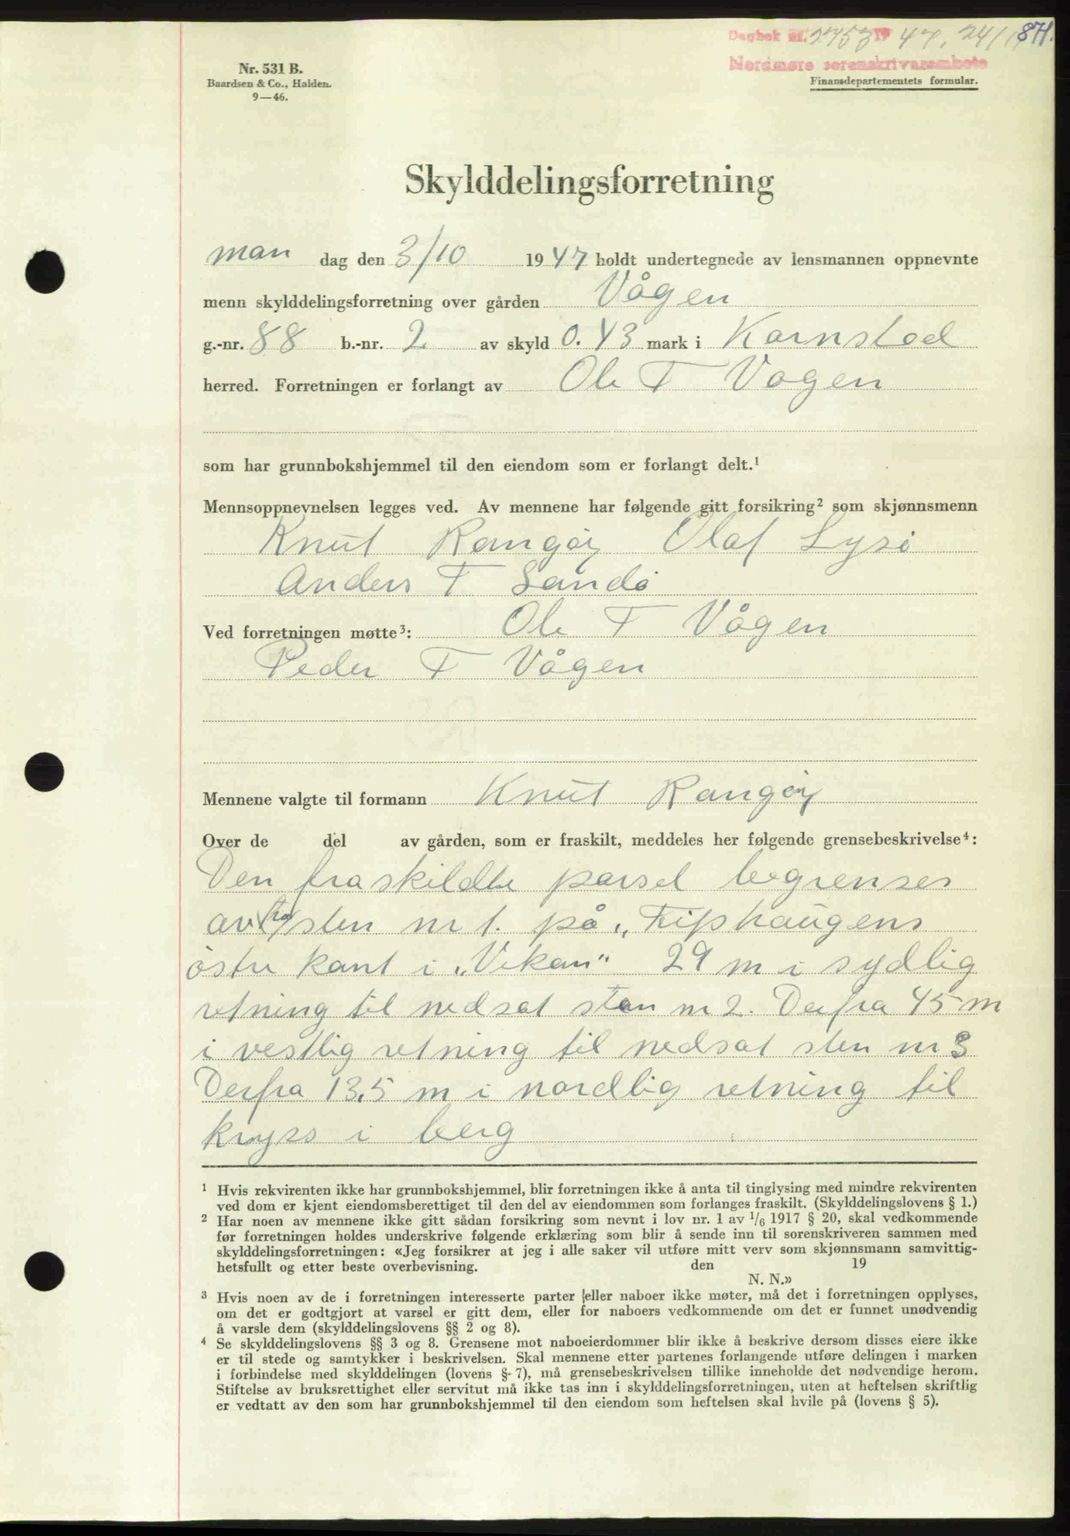 Dagbok nr. 2753 19 47. 24/11 871.
Nordmøre sorenskriverembete
Nr. 531 B.
Baardsen & Co., Halden.
9—46.
Finansdepartementets formular.
Skylddelingsforretning
man dag den 3/10 1947 holdt undertegnede av lensmannen oppnevnte
menn skylddelingsforretning over gården Vågen
g.-nr. 88 b.-nr. 2 av skyld 0.43 mark i Kornstad
herred. Forretningen er forlangt av Ole F Vågen
som har grunnbokshjemmel til den eiendom som er forlangt delt.¹
Mennsoppnevnelsen legges ved. Av mennene har følgende gitt forsikring² som skjønnsmenn
Knut Rangøy Olaf Lysø
Anders F Sandø
Ved forretningen møtte³: Ole F Vågen
Peder F Vågen
Mennene valgte til formann Knut Rangøy
Over de del av gården, som er fraskilt, meddeles her følgende grensebeskrivelse⁴:
Den fraskildte parsel begrenses
av fra sten nr 1. på „Fipshaugens
østre kant i „Vikan“ 29 m i sydlig
retning til nedsat sten nr 2. Derfra 45 m
i vestlig retning til nedsat sten nr 3
Derfra 13,5 m i nordlig retning til
kryss i berg
¹ Hvis rekvirenten ikke har grunnbokshjemmel, blir forretningen ikke å anta til tinglysing med mindre rekvirenten
ved dom er kjent eiendomsberettiget til den del av eiendommen som forlanges fraskilt. (Skylddelingslovens § 1.)
² Har noen av mennene ikke gitt sådan forsikring som nevnt i lov nr. 1 av 1/6 1917 § 20, skal vedkommende
før forretningen holdes underskrive følgende erklæring som blir å sende inn til sorenskriveren sammen med
skylddelingsforretningen: «Jeg forsikrer at jeg i alle saker vil utføre mitt verv som skjønnsmann samvittig-
hetsfullt og etter beste overbevisning. den 19
N. N.»
³ Hvis noen av de i forretningen interesserte parter eller naboer ikke møter, må det i forretningen opplyses,
om det er godtgjort at varsel er gitt dem, eller for naboers vedkommende om det er funnet unødvendig
å varsle dem (skylddelingslovens §§ 2 og 8).
⁴ Se skylddelingslovens §§ 3 og 8. Grensene mot naboeierdommer blir ikke å beskrive dersom disses eiere ikke
er til stede og samtykker i beskrivelsen. Skal mennene etter partenes forlangende utføre delingen i marken
i forbindelse med skylddelingen (lovens § 7), må grensebeskrivelsen tillike inneholde det nødvendige herom.
Stiftelse av bruksrettighet eller servitut må ikke tas inn i skylddelingsforretningen, uten at heftelsen skriftlig
er vedtatt av den som har grunnbokshjemmel til den eiendom som heftelsen skal hvile på (lovens § 5).